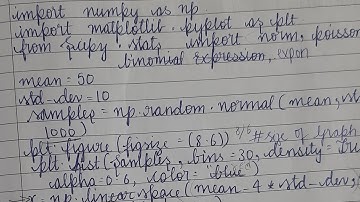 import numpy as np
import matplotlib.pyplot as plt
from scipy.stats import norm, poisson
binomial expression, expon
mean = 50
std_dev = 10
samples = np.random.normal(mean, st
1000)
plt.figure(figsize = (8.6)) #size of graph
plt.hist(samples, bins = 30, density = Tru
alpha = 0.6, color = "blue")
x = np.linearspace(mean - 4 * std-dev,